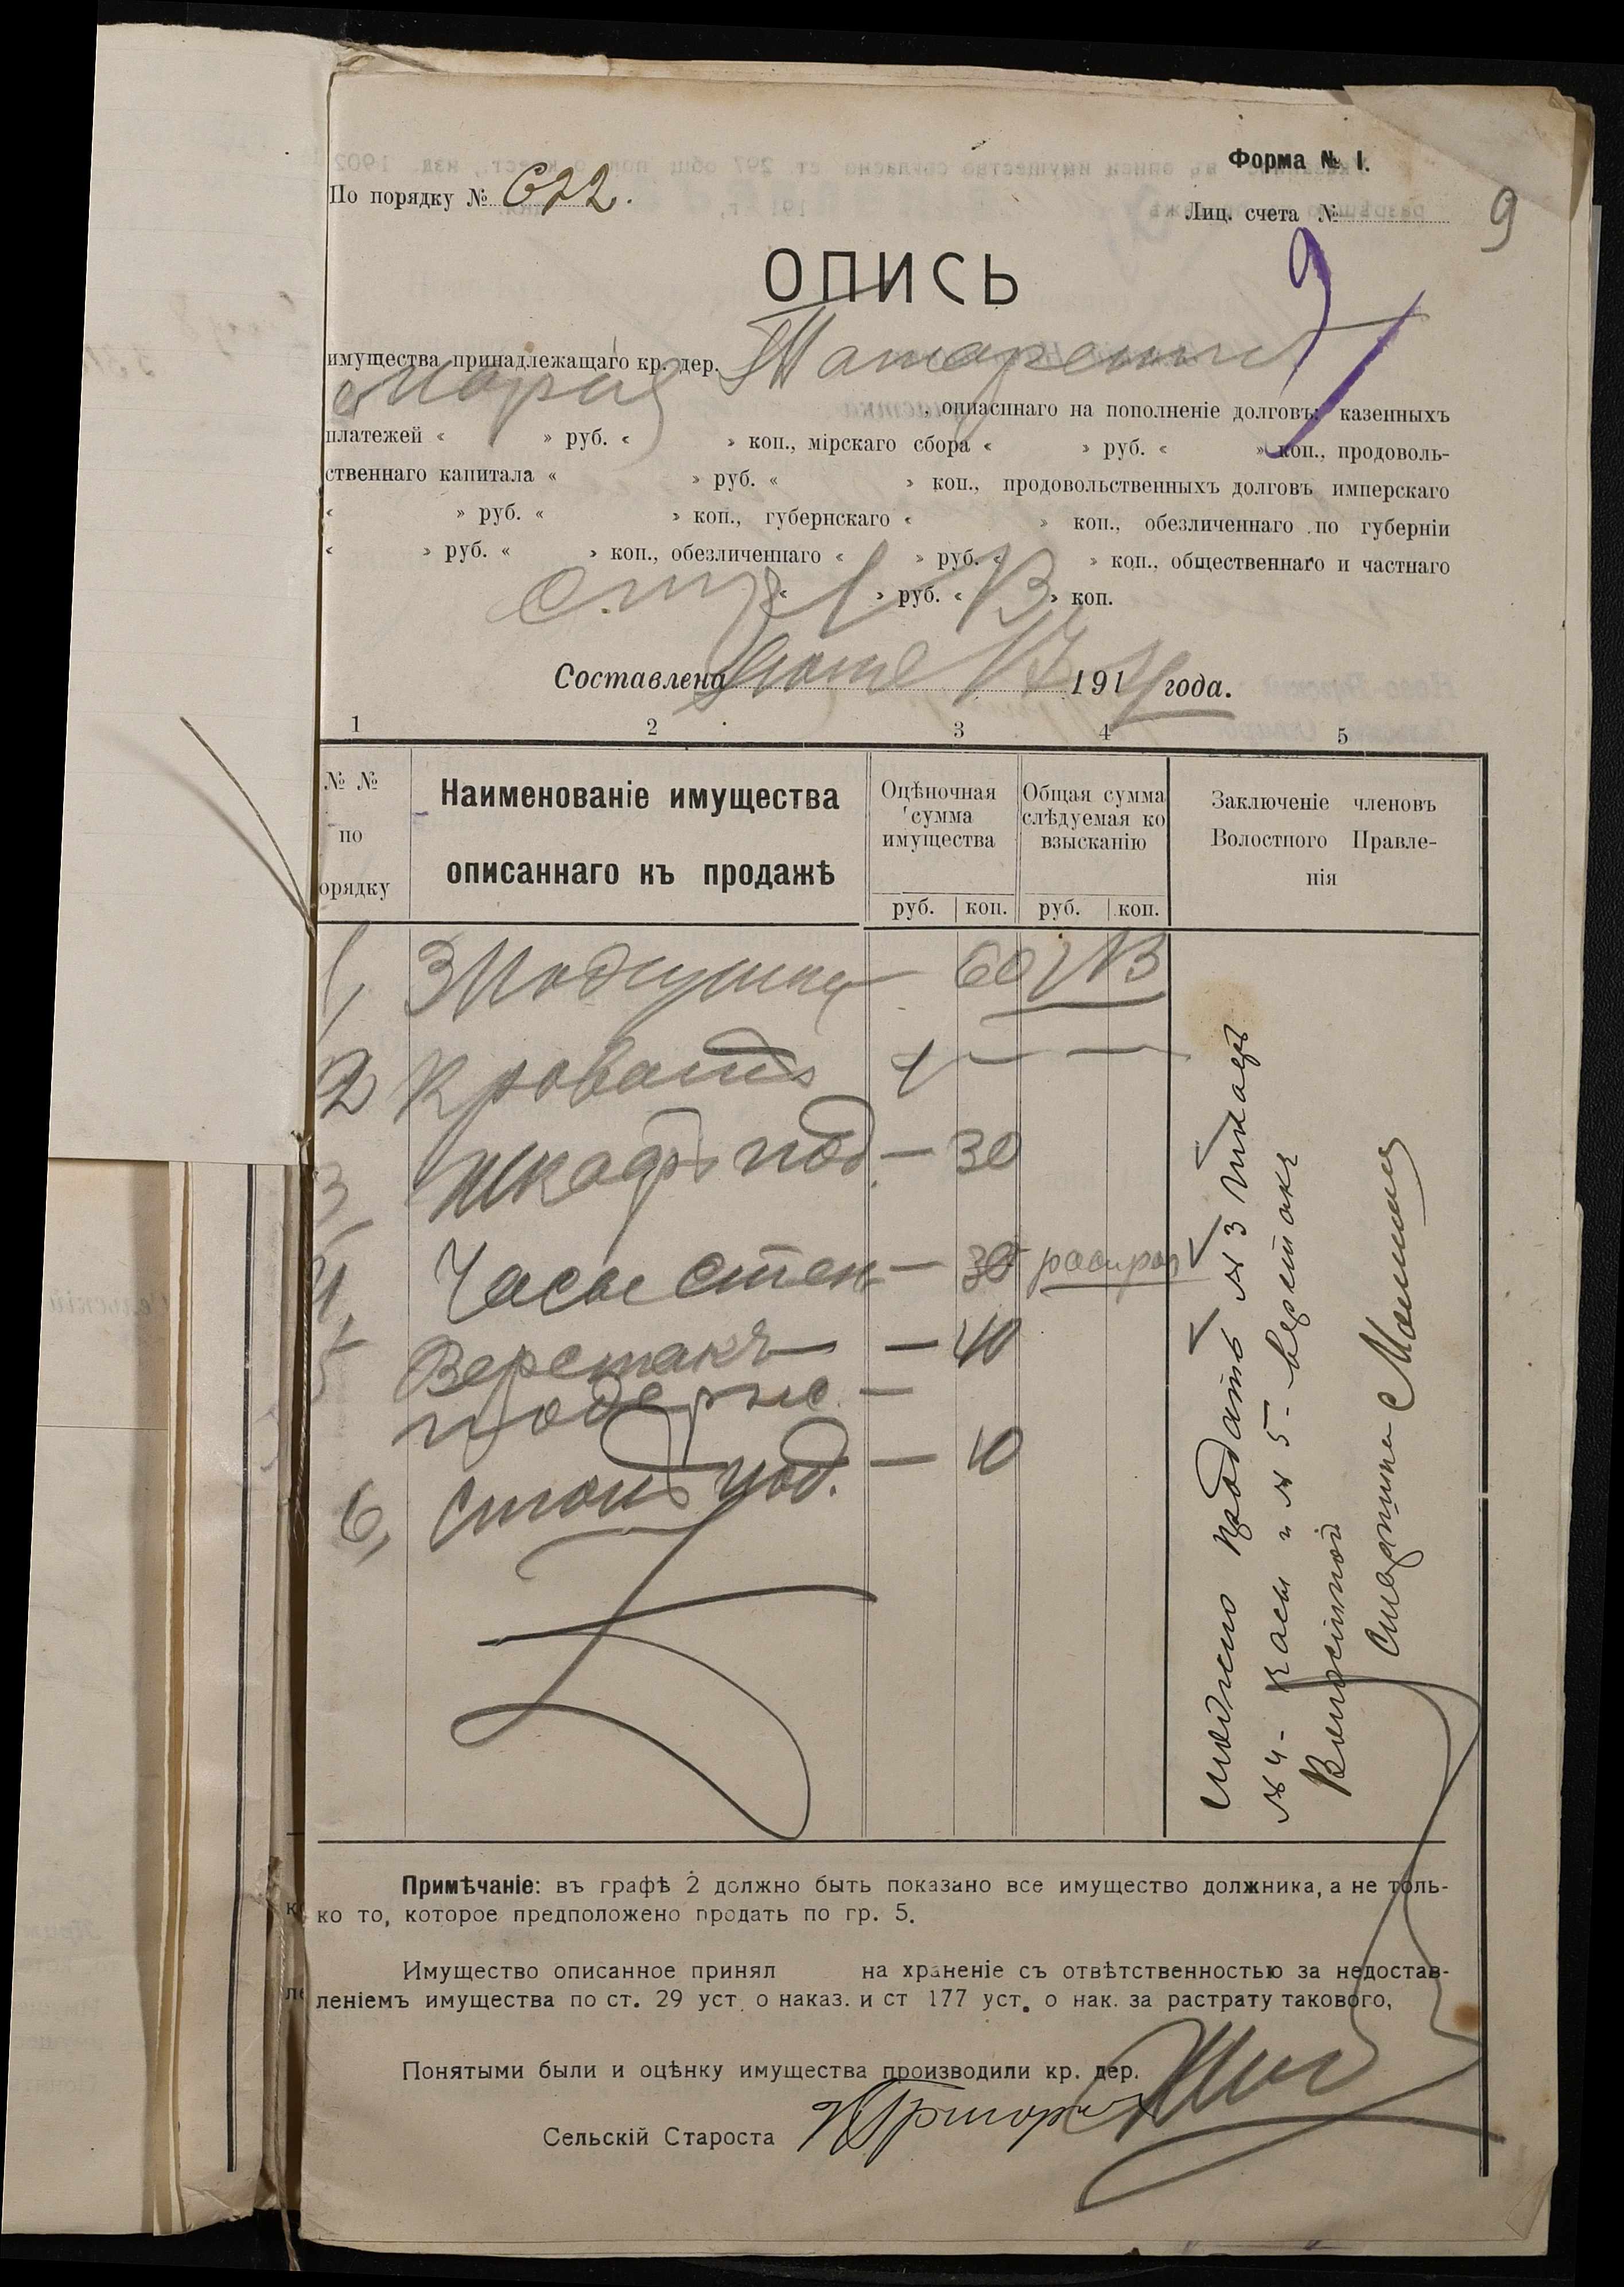 Форма № 1.
По порядку № 622.
Лиц. счета №
9
9
ОПИСЬ
имущества принадлежащаго кр. дер.
Мария
, описаннаго на пополненіе долговъ: казенныхъ
платежей « » руб. « » коп., мірскаго сбора « » руб. « » коп., продоволь-
ственнаго капитала « » руб. « » коп., продовольственныхъ долговъ имперскаго
« » руб. « » коп., губернскаго « » коп., обезличеннаго по губерніи
« » руб. « » коп., обезличеннаго « » руб. « » коп., общественнаго и частнаго
« » руб. « » коп.
Составлена 17 1914 года.
1 2 3 4 5
№ № по порядку
Наименованіе имущества описаннаго къ продажѣ
Оцѣночная сумма имущества
Общая сумма слѣдуемая ко взысканію
Заключеніе членовъ Волостного Правле-
нія
руб. коп. руб. коп.
1, 3 Подушки 60
2 Кровать 1 — —
3, Шкафъ под. — 30
4, Часы стен — 30
5 Верстакъ — 40
подерж. —
6, Столъ под. — 10
можно продать № 3 шкафъ
№ 4 - часы и № 5 - верстакъ
Волостной
Старшина
Примѣчаніе: въ графѣ 2 должно быть показано все имущество должника, а не толь-
ко то, которое предположено продать по гр. 5.
Имущество описанное принял на храненіе съ отвѣтственностью за недостав-
леніемъ имущества по ст. 29 уст. о наказ. и ст 177 уст. о нак. за растрату такового,
Понятыми были и оцѣнку имущества производили кр. дер.
Сельскій Староста